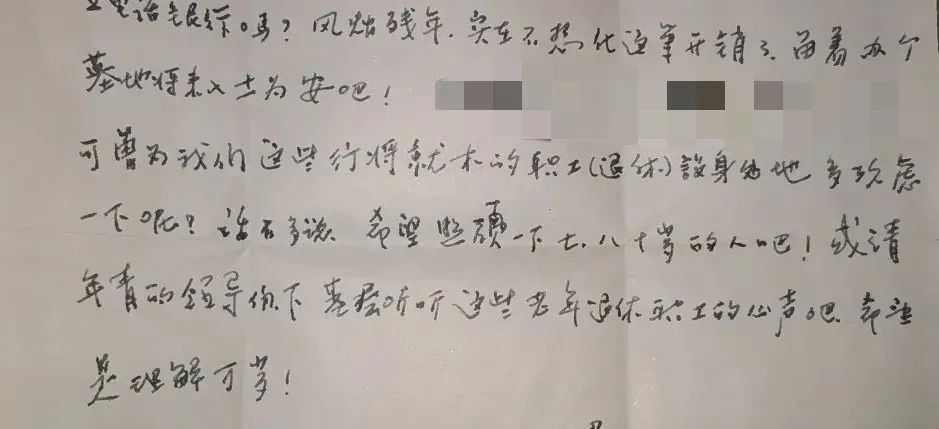 行吗？风烛残年，实在不想化这笔开销了，留着办个
墓地将来入土为安吧！
可曾为我们这些行将就木的职工(退休)設身处地多攷虑
一下呢？话不多说，希望照顾一下七、八十岁的人吧！或请
年青的领导下基层听听这些老年退休职工的心声吧，希望
是理解万岁！